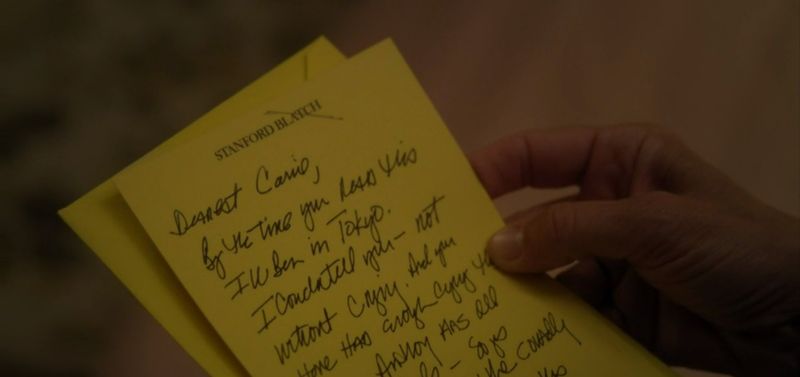 STANFORD BLATCH
Dearest Carrie,
By the time you read this
I'll be in Tokyo.
I couldn't tell you - not
without crying. And you
Have Had enough crying
Anthony Has all